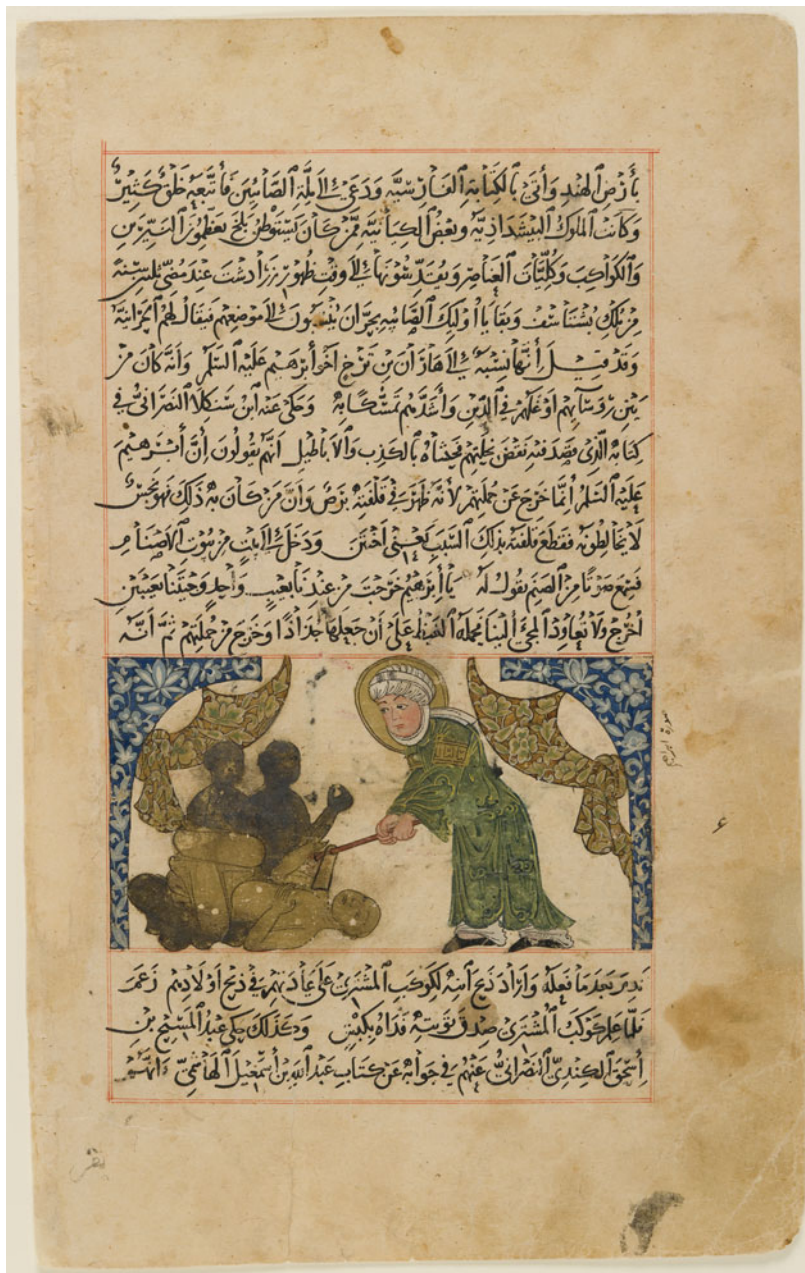 بأرض الهند وأتى بالكتابة الفارسية ودعى إلى ملة الصابئين فأتبعه خلق كثير
وكانت الملوك البيشداذية وبعض الكيانية ممن كان يستوطن بلخ يعظمون النيرين
والكواكب وكليات العناصر ويقدسونها إلى وقت ظهور زرادشت عند مضي ثلثين سنة
من ملك بشتاسف وبقايا أولئك الصابئة بحران ينسبون إلى موضعهم فيقال لهم الحرانية
وقد قيل أنها نسبة إلى هاذان بن ترح أخو أبرهيم عليه السلم وأنه كان من
بين رؤسآئهم أوغلهم في الدين وأشدهم تمسكا به وحكى عنه ابن سنكلا النصراني في
كتابه الذي قصد فيه نقض نحلتهم فحشاه بالكذب والأباطيل أنهم يقولون أن أبرهيم
عليه السلم أنما خرج عن جملتهم لأنه ظهر في قلفته برص وأن من كان به ذلك فهو نجس
لا يخالطونه فقطع قلفته بذلك السبب يعني أختتن ودخل إلى بيت من بيوت الأصنام
فسمع صوتا من الصنم يقول له يا أبرهيم خرجت من عندنا بعيب واحد وجيتنا بعيبين
أخرج ولا تعاود المجئ ألينا فحمله الغيظ على أن جعلها جذاذا وخرج من جملتهم ثم أنه
صورة ابراهيم
ندم بعد ما فعله وأراد ذبح أبنه لكوكب المشتري على عادتهم في ذبح أولادهم زعم
فلما علم كوكب المشتري صدق توبته فداه بكبش وكذلك حكى عبد المسيح بن
أسحق الكندي النصراني عنهم في جوابه عن كتاب عبد الله بن أسمعيل الهاشمي أنهم